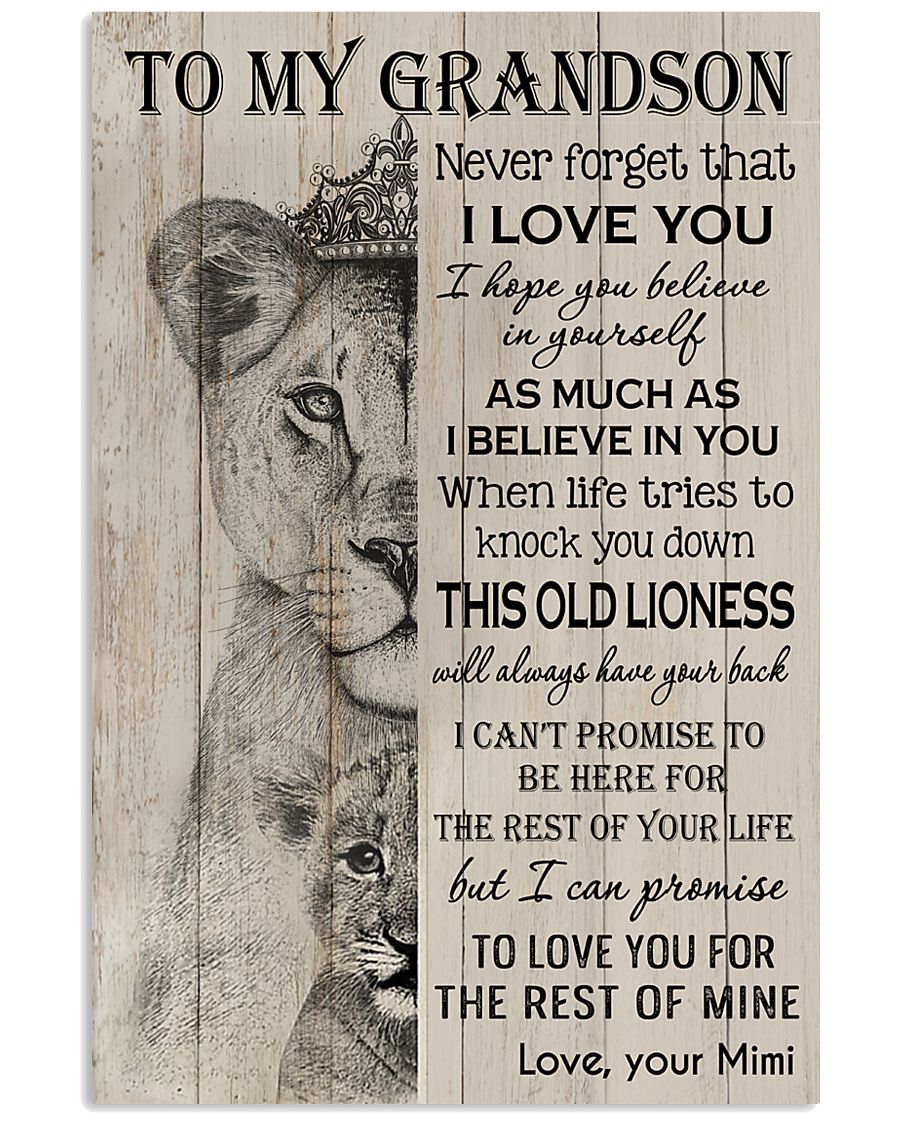 TO MY GRANDSON
Never forget that
I LOVE YOU
I hope you believe
in yourself
AS MUCH AS
I BELIEVE IN YOU
When life tries to
knock you down
THIS OLD LIONESS
will always have your back
I CAN'T PROMISE TO
BE HERE FOR
THE REST OF YOUR LIFE
but I can promise
TO LOVE YOU FOR
THE REST OF MINE
Love, your Mimi